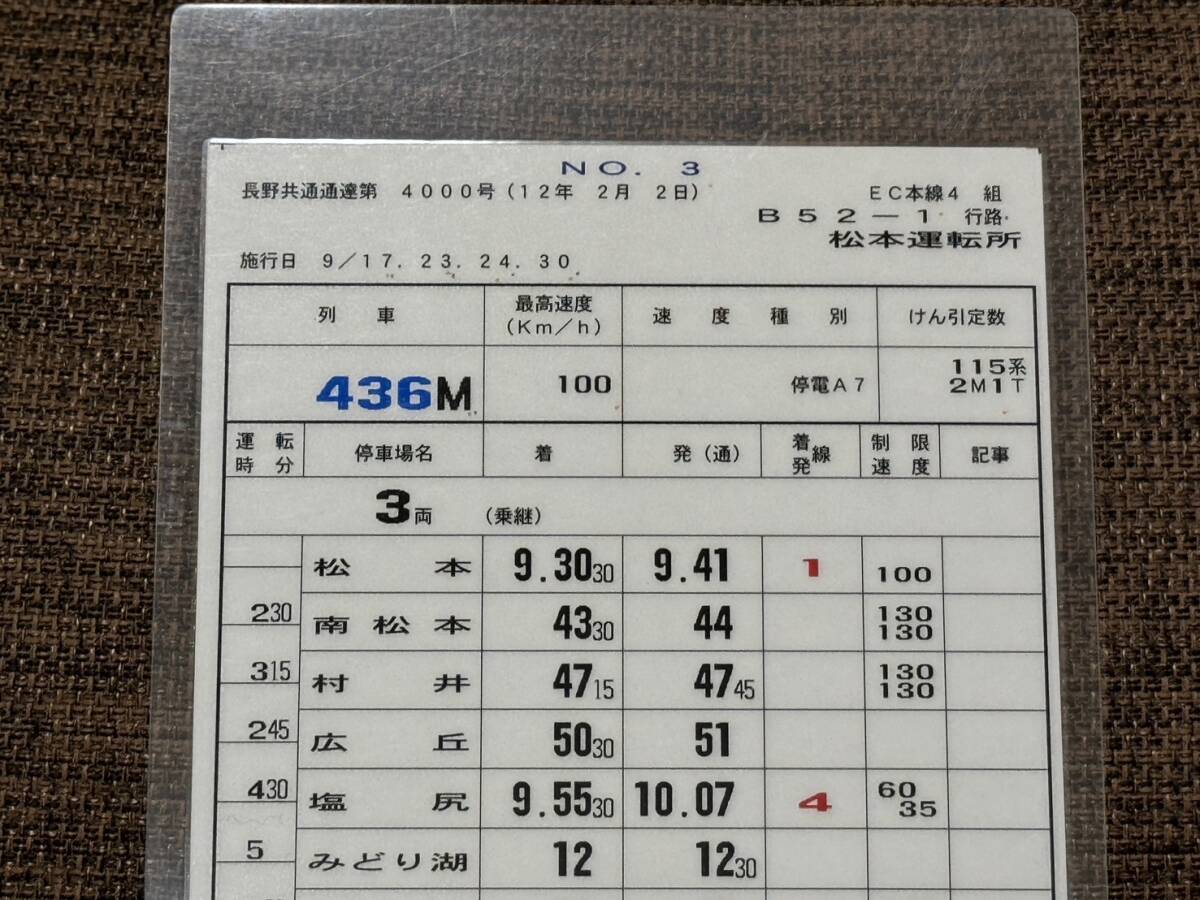 NO. 3
長野共通通達第 4000号(12年 2月 2日)
EC本線4 組
B52-1 行路
松本運転所
施行日 9/17. 23. 24. 30
列 車 最高速度(Km/h) 速 度 種 別 けん引定数
436M 100 停電A7 115系 2M1T
運転時分 停車場名 着 発(通) 着発線 制限速度 記事
3両 (乗継)
松 本 9.30 30 9.41 1 100
2 30
南 松 本 43 30 44 130 130
3 15
村 井 47 15 47 45 130 130
2 45
広 丘 50 30 51
4 30
塩 尻 9.55 30 10.07 4 60 35
5
みどり湖 12 12 30